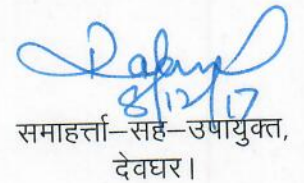 8/12/17
समाहर्त्ता–सह–उपायुक्त,
देवघर।